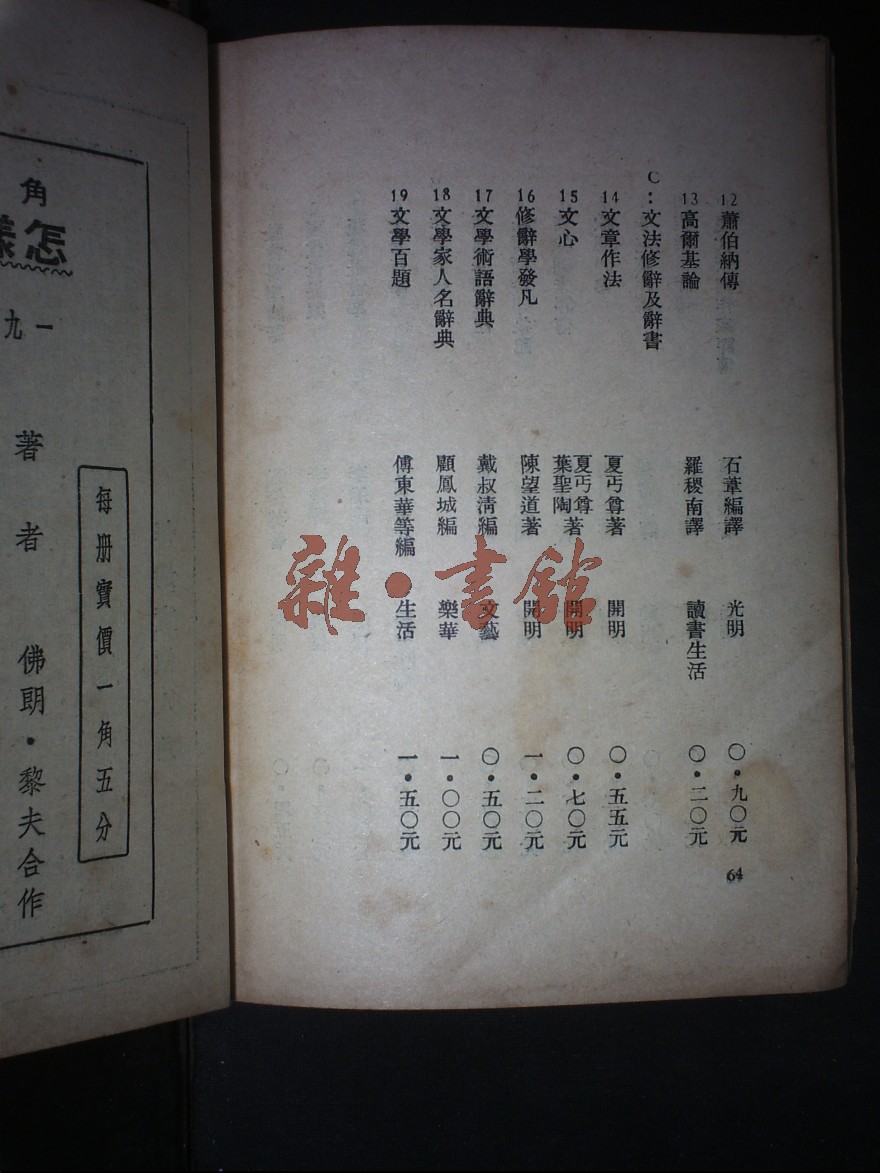 12 蕭伯納傳 石葦編譯 光明 〇·九〇元
13 高爾基論 羅稷南譯 讀書生活 〇·二〇元
C：文法修辭及辭書
14 文章作法 夏丏尊著 開明 〇·五五元
15 文心 夏丏尊 葉聖陶著 開明 〇·七〇元
16 修辭學發凡 陳望道著 開明 一·二〇元
17 文學術語辭典 戴叔清編 文藝 〇·五〇元
18 文學家人名辭典 顧鳳城編 樂華 一·〇〇元
19 文學百題 傅東華等編 生活 一·五〇元
64
雜·書館
每册實價一角五分
角
怎樣
一九
著者 佛朗·黎夫合作